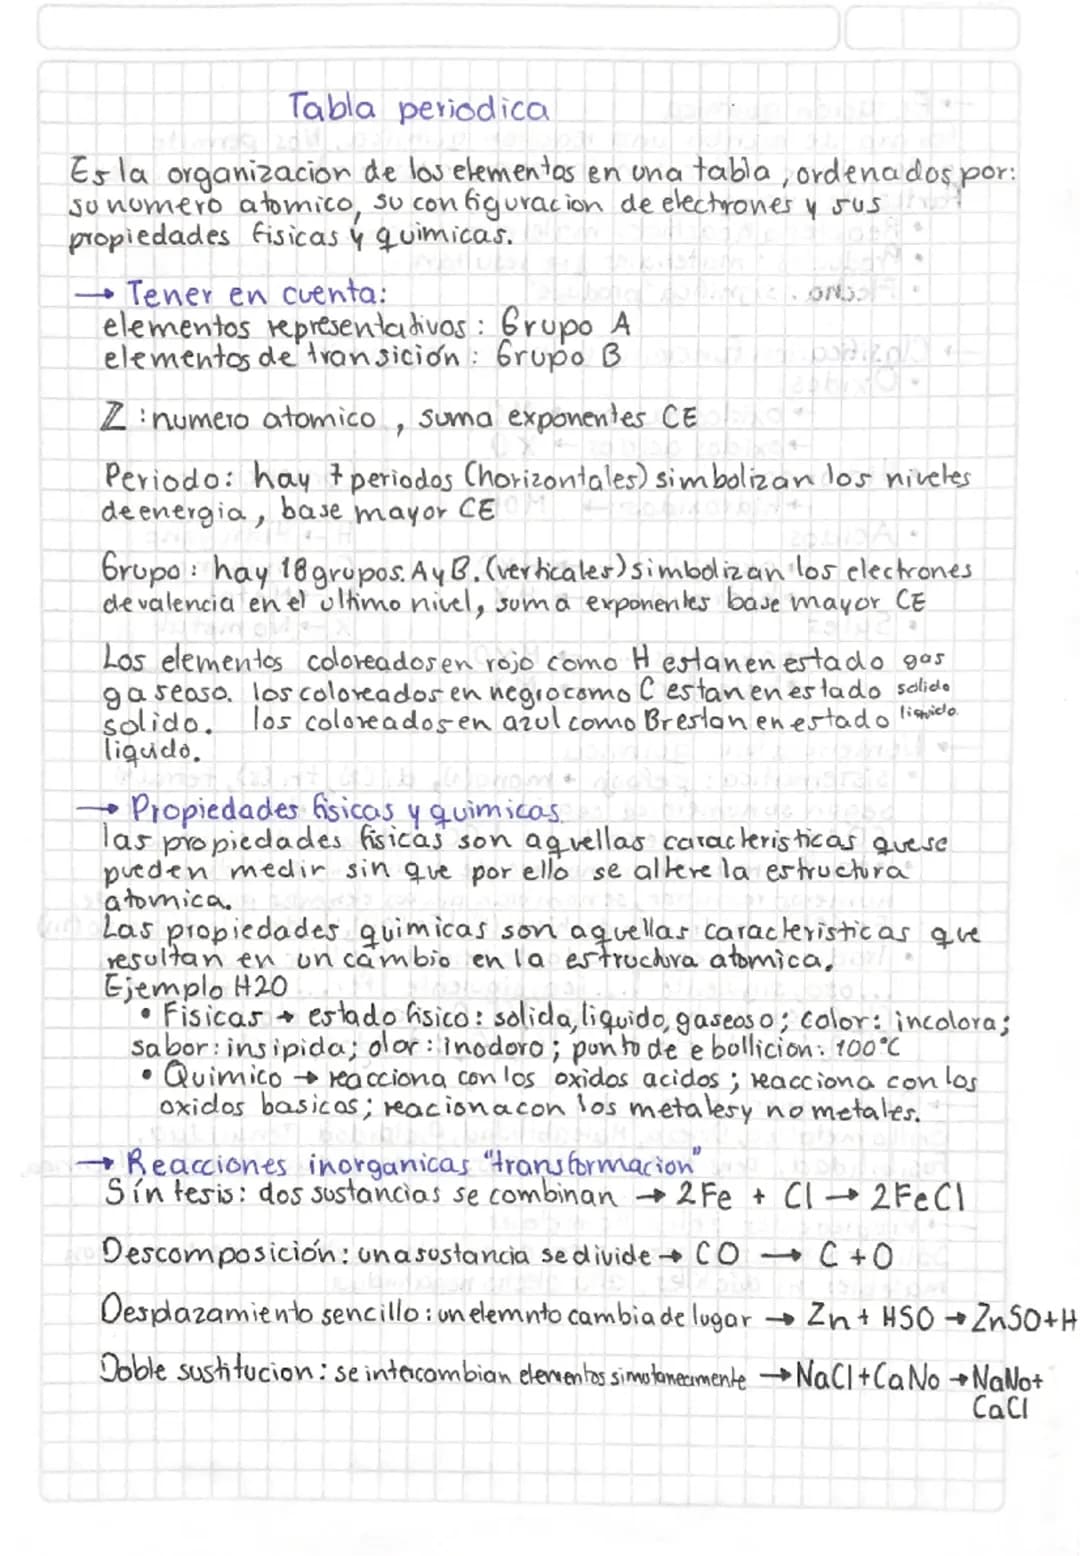 Tabla periodica
Es la organizacion de los elementos en una tabla, ordenados por:
su numero atomico, su configuracion de electrones y sus
propiedades fisicas y quimicas.
→ Tener en cuenta:
elementos representativos: Grupo A
elementos de transición: Grupo B
Z: numero atomico, suma exponentes CE
Periodo: hay 7 periodos (horizontales) simbolizan los niveles
de energia, base mayor CE
Grupo: hay 18 grupos. A y B. (verticales) simbolizan los electrones
de valencia en el ultimo nivel, suma exponentes base mayor CE
Los elementos coloreados en rojo como H estan en estado gas
gaseaso. los coloreados en negro como C estan en estado solido
solido. los coloreados en azul como Br estan en estado liquido.
liquido.
→ Propiedades fisicas y quimicas.
las propiedades fisicas son aquellas caracteristicas que se
pueden medir sin que por ello se altere la estructura
atomica.
Las propiedades quimicas son aquellas caracteristicas que
resultan en un cambio en la estructura atomica.
Ejemplo H2O
• Fisicas → estado fisico: solida, liquido, gaseoso; color: incolora;
sabor: insipida; olor: inodoro; punto de e bollicion: 100°C
• Quimico → reacciona con los oxidos acidos; reacciona con los
oxidos basicos; reaciona con los metales y no metales.
→ Reacciones inorganicas "transformacion"
Síntesis: dos sustancias se combinan → 2Fe + Cl → 2FeCl
Descomposición: una sustancia se divide → CO → C + O
Desplazamiento sencillo: un elemnto cambia de lugar → Zn + HSO → ZnSO+H
Doble sustitucion: se intercambian elementos simutaneamente → NaCl + CaNo → NaNo+
CaCl